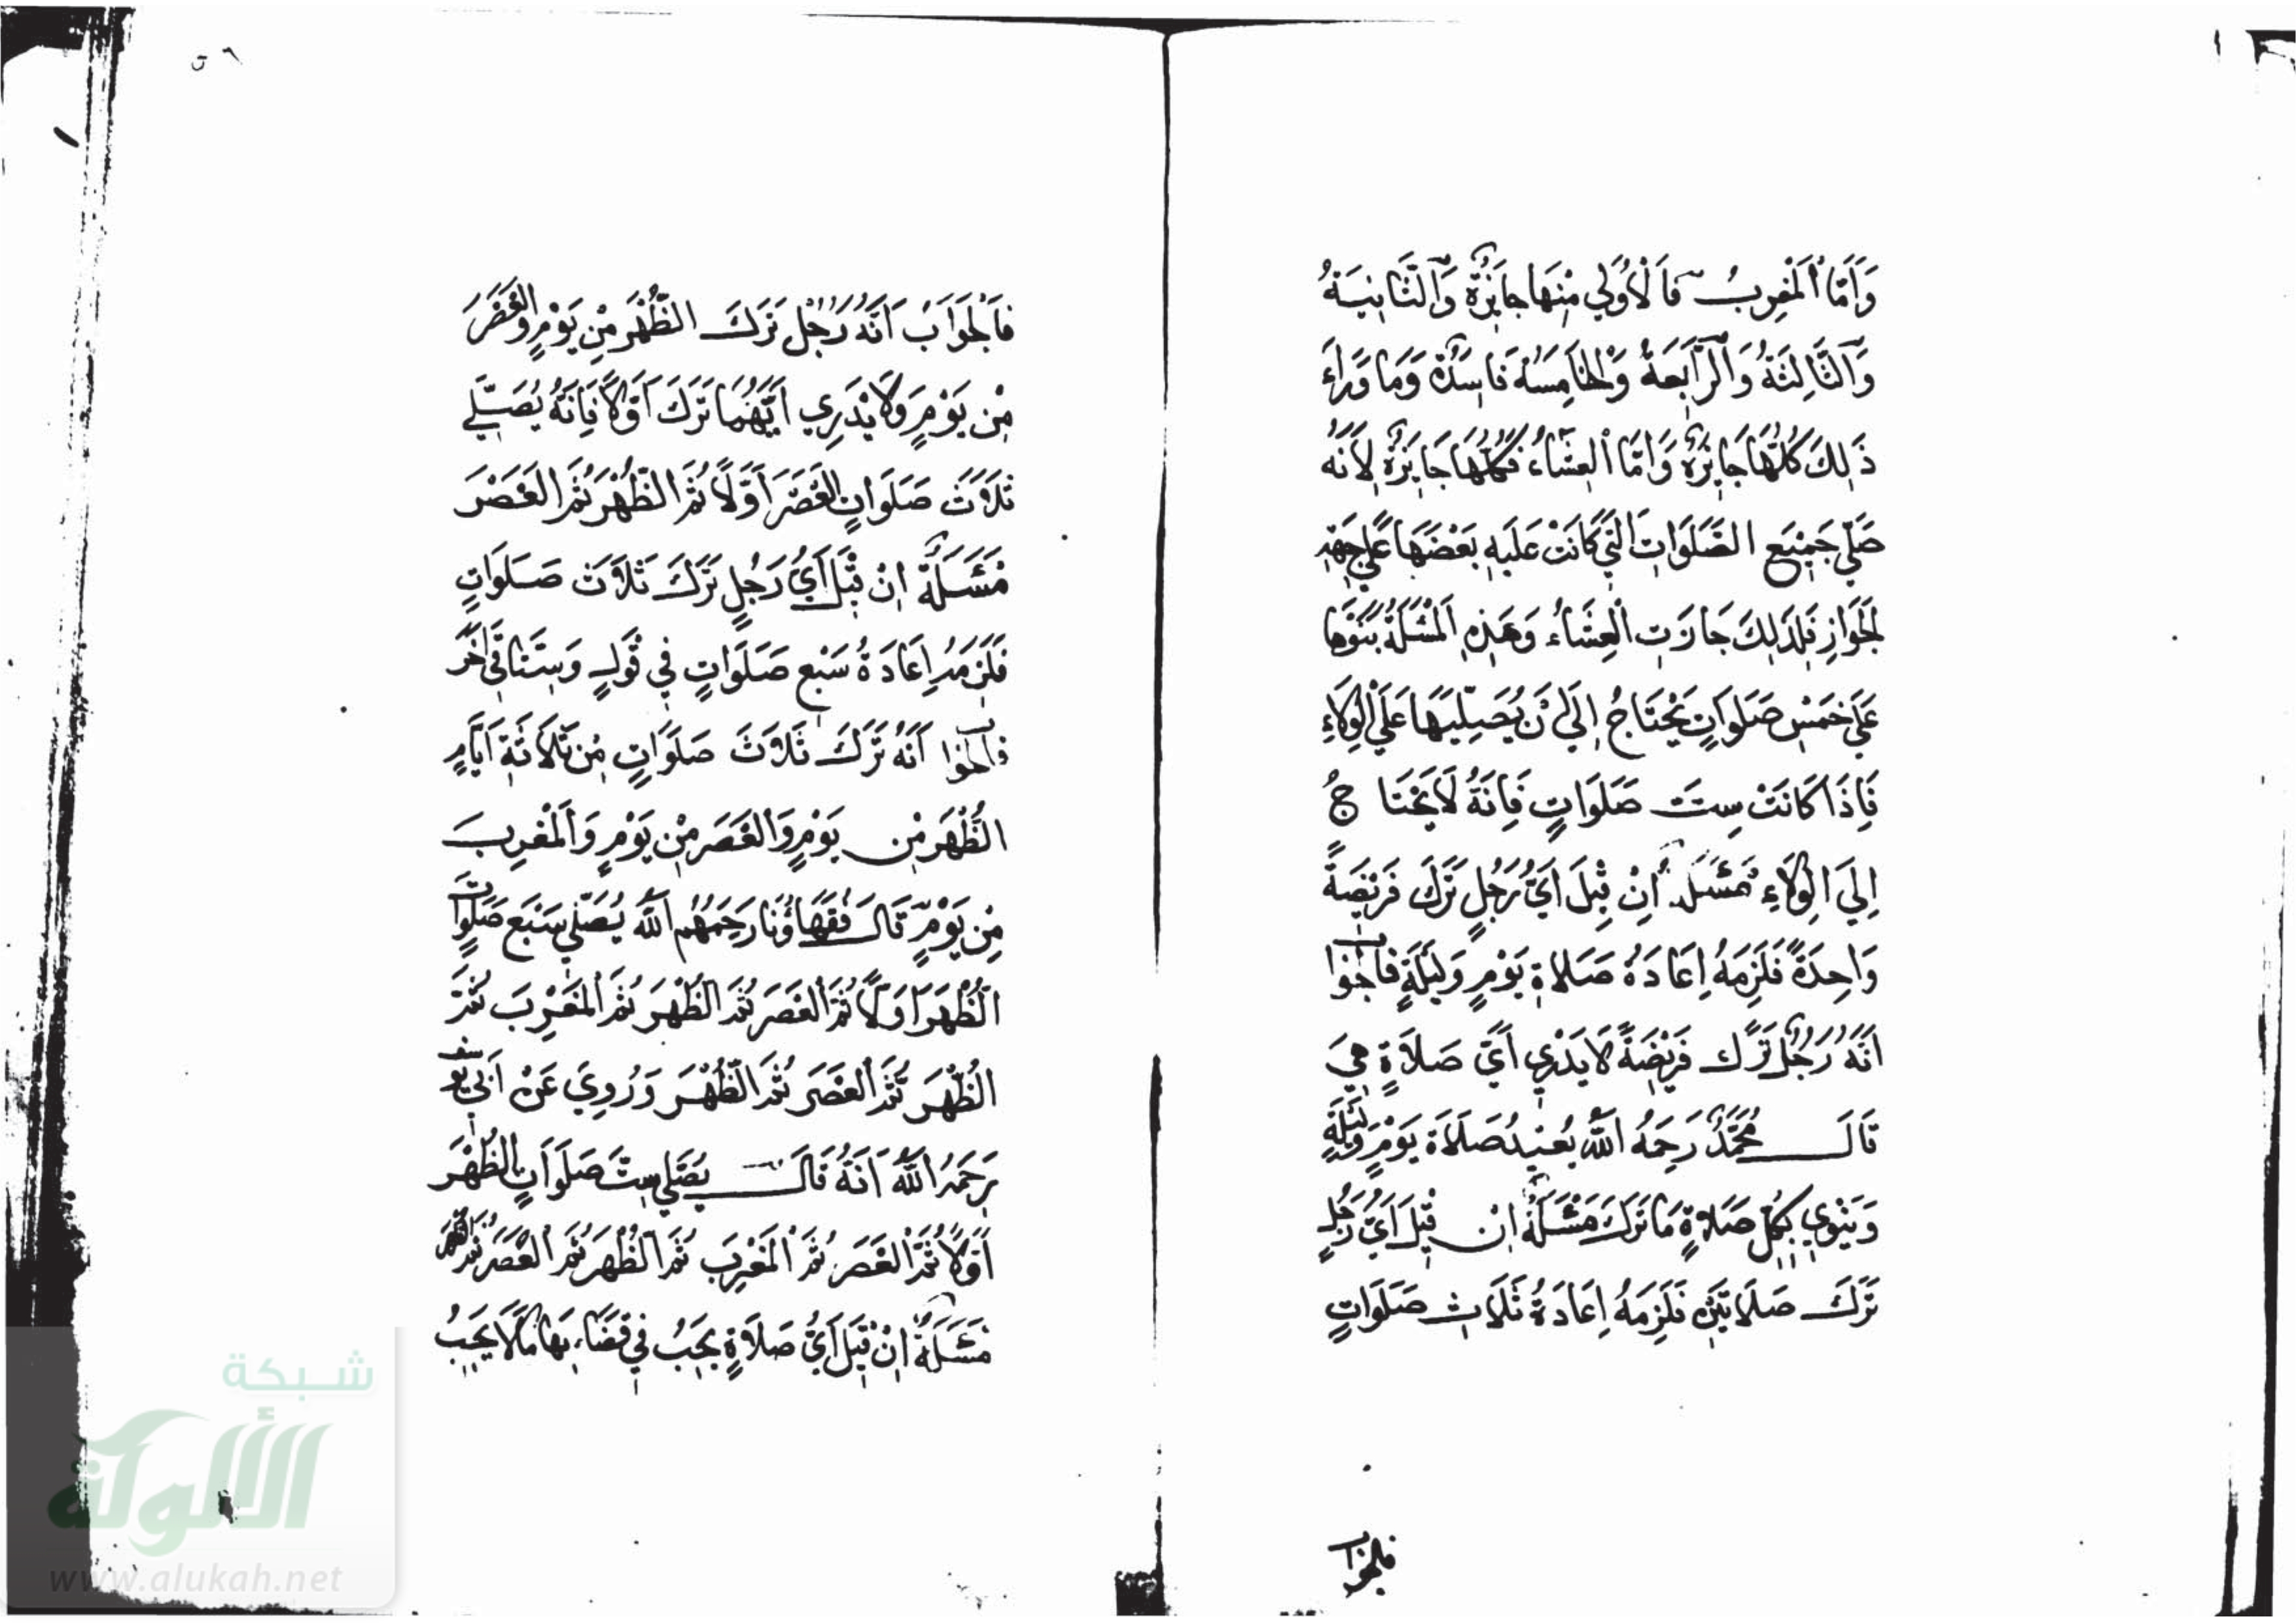 وَأَمَّا الْمَغْرِبُ فَالْأُولَى مِنْهَا جَائِزَةٌ وَالثَّانِيَةُ
وَالثَّالِثَةُ وَالرَّابِعَةُ وَالْخَامِسَةُ فَاسِدَةٌ وَمَا وَرَاءَ
ذَلِكَ كُلُّهَا جَايِزَةٌ وَأَمَّا الْعِشَاءُ فَكُلُّهَا جَايِزَةٌ لِأَنَّهُ
صَلَّى جَمِيعَ الصَّلَوَاتِ الَّتِي كَانَتْ عَلَيْهِ بَعْضَهَا عَلَى جِهَةِ
الْجَوَازِ فَلِذَلِكَ جَازَتِ الْعِشَاءُ وَهَذِهِ الْمَسْئَلَةُ بَنَوْهَا
عَلَى خَمْسِ صَلَوَاتٍ يَحْتَاجُ إِلَى أَنْ يُصَلِّيَهَا عَلَى الْوِلَاءِ
فَإِذَا كَانَتْ سِتَّ صَلَوَاتٍ فَإِنَّهُ لَا يَحْتَاجُ
إِلَى الْوِلَاءِ مَسْئَلَةٌ إِنْ قِيلَ أَيُّ رَجُلٍ تَرَكَ فَرِيْضَةً
وَاحِدَةً فَلَزِمَهُ إِعَادَةُ صَلَاةِ يَوْمٍ وَلَيْلَةٍ فَالْجَوَابُ
أَنَّهُ رَجُلٌ تَرَكَ فَرِيْضَةً لَا يَدْرِي أَيَّ صَلَاةٍ هِيَ
قَالَ مُحَمَّدٌ رَحِمَهُ اللَّهُ يُعِيْدُ صَلَاةَ يَوْمٍ وَلَيْلَةٍ
وَيَنْوِي بِكُلِّ صَلَاةٍ مَا تَرَكَ مَسْئَلَةٌ إِنْ قِيلَ أَيُّ رَجُلٍ
تَرَكَ صَلَاتَيْنِ فَلَزِمَهُ إِعَادَةُ ثَلَاثِ صَلَوَاتٍ
فالجواب
فَالْجَوَابُ أَنَّهُ رَجُلٌ تَرَكَ الظُّهْرَ مِنْ يَوْمٍ وَالْعَصْرَ
مِنْ يَوْمٍ وَلَا يَدْرِي أَيَّهُمَا تَرَكَ أَوَّلًا فَإِنَّهُ يُصَلِّي
ثَلَاثَ صَلَوَاتٍ الْعَصْرَ أَوَّلًا ثُمَّ الظُّهْرَ ثُمَّ الْعَصْرَ
مَسْئَلَةٌ إِنْ قِيلَ أَيُّ رَجُلٍ تَرَكَ ثَلَاثَ صَلَوَاتٍ
فَلَزِمَهُ إِعَادَةُ سَبْعِ صَلَوَاتٍ فِي قَوْلٍ وَسِتٍّ فِي آخَرَ
فَالْجَوَابُ أَنَّهُ تَرَكَ ثَلَاثَ صَلَوَاتٍ مِنْ ثَلَاثَةِ أَيَّامٍ
الظُّهْرَ مِنْ يَوْمٍ وَالْعَصْرَ مِنْ يَوْمٍ وَالْمَغْرِبَ
مِنْ يَوْمٍ قَالَ فُقَهَاؤُنَا رَحِمَهُمُ اللَّهُ يُصَلِّي سَبْعَ صَلَوَاتٍ
الظُّهْرَ أَوَّلًا ثُمَّ الْعَصْرَ ثُمَّ الظُّهْرَ ثُمَّ الْمَغْرِبَ ثُمَّ
الظُّهْرَ ثُمَّ الْعَصْرَ ثُمَّ الظُّهْرَ وَرُوِيَ عَنْ أَبِي يُوسُفَ
رَحِمَهُ اللَّهُ أَنَّهُ قَالَ يُصَلِّي سِتَّ صَلَوَاتٍ الظُّهْرَ
أَوَّلًا ثُمَّ الْعَصْرَ ثُمَّ الْمَغْرِبَ ثُمَّ الظُّهْرَ ثُمَّ الْعَصْرَ ثُمَّ الظُّهْرَ
مَسْئَلَةٌ إِنْ قِيلَ أَيُّ صَلَاةٍ يَجِبُ فِي قَضَاءِهَا مَا لَا يَجِبُ
شبكة
الألوكة
www.alukah.net